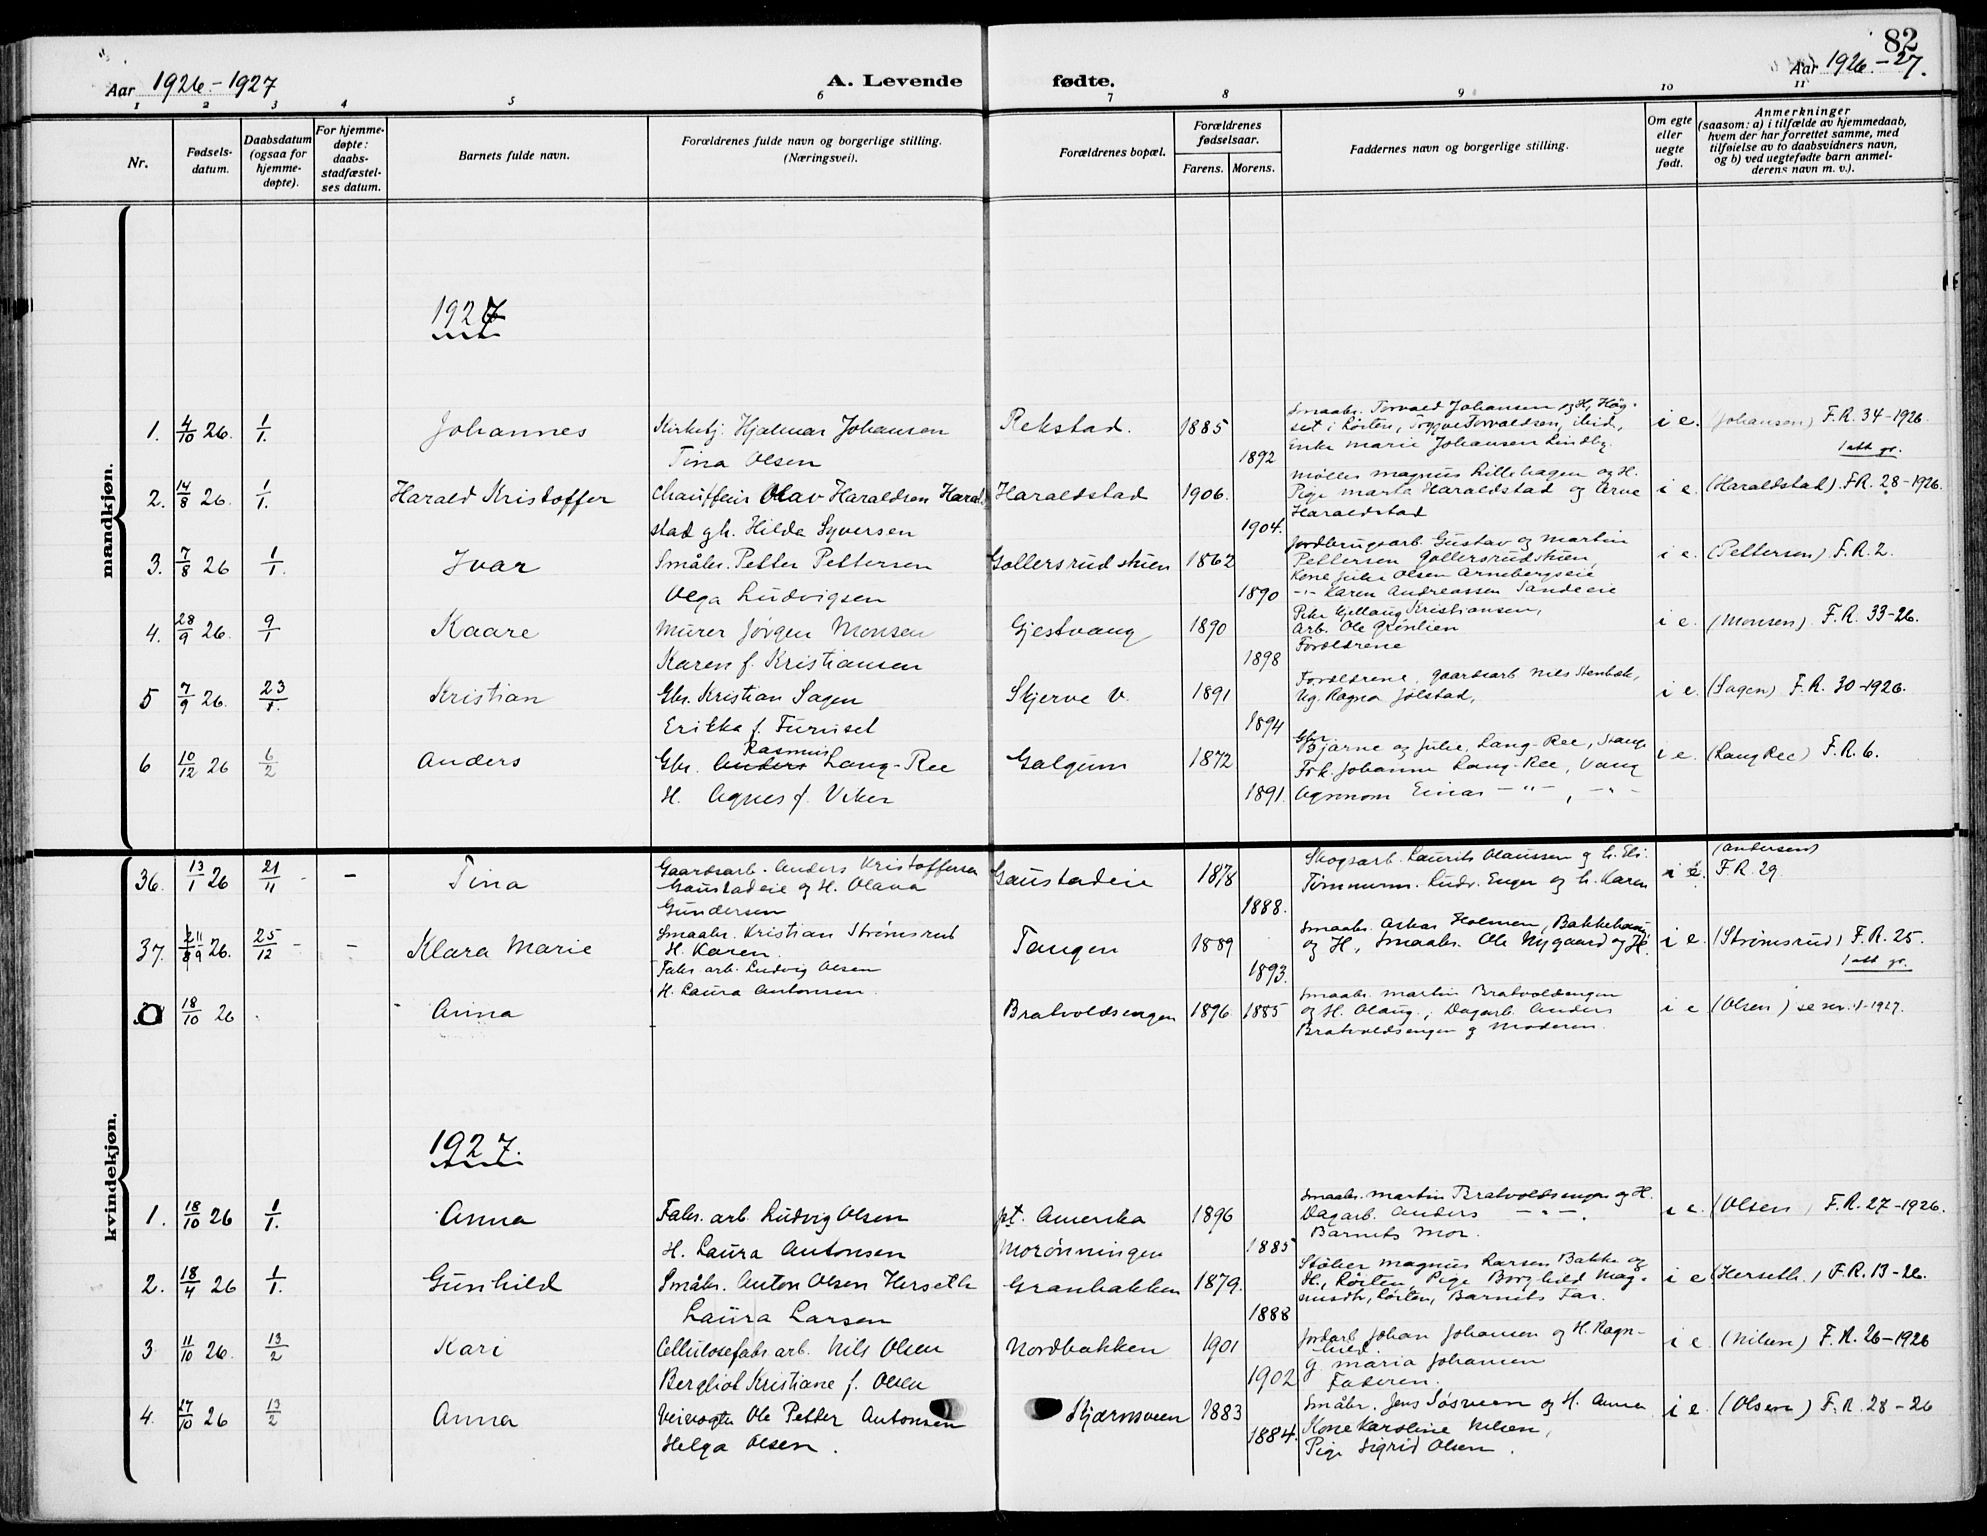 82
Aar 1926-1927
A. Levende fødte.
Aar 1926-27.
1 2 3 4 5 6 7 8 9 10 11
Nr.
Fødsels-
datum.
Daabsdatum
(ogsaa for
hjemme-
døpte).
For hjemme-
døpte:
daabs-
stadfæstel-
ses datum.
Barnets fulde navn.
Forældrenes fulde navn og borgerlige stilling.
(Næringsvei).
Forældrenes bopæl.
Forældrenes
fødselsaar.
Farens. Morens.
Faddernes navn og borgerlige stilling.
Om egte
eller
uegte
født.
Anmerkninger
(saasom: a) i tilfælde av hjemmedaab,
hvem der har forrettet samme, med
tilføielse av to daabsvidners navn,
og b) ved uegtefødte barn anmel-
derens navn m. v.).
mandkjøn.
1927
1. 4/10 26. 1/1. Johannes
Kirketj. Hjalmar Johansen
Tina Olsen
Rekstad. 1885 1892
Smaabr. Torvald Johansen og H, Høg-
set i Løten, Torvaldsen, ibid,
Enke Marie Johansen Lindby.
i e. (Johansen) F.R. 34-1926.
1 att gr.
2. 14/8 26. 1/1. Harald Kristoffer
Chauffeur Olav Haraldsen Harald
stad gh. Hilda Syversen
Haraldstad 1906. 1904.
Møller Magnus Lillehagen og H.
Pige Marta Haraldstad og Arve
Haraldstad
i e. (Haraldstad). F.R. 28-1926.
3. 7/8 26 1/1. Ivar
Småbr. Petter Pettersen
Olga Ludvigsen
Gollersrudstuen 1862 1890
Jordbrugsarb. Gustav og Martin
Pettersen Gollersrudstuen,
Kone Julie Olsen Arnebergseie
-"- Karen Andreassen Sandeie
i e. (Pettersen) F.R. 2.
4. 28/9 26. 9/1 Kaare
Murer Jörgen Monsen
Karen f. Kristiansen
Gjestvang 1890 1898
Pike Kristiansen,
Arb. Ole Grønlien
Foreldrene
i e. (Monsen). F.R. 33-26.
5 7/9 26. 23/1. Kristian
Gbr. Kristian Sagen
Erikka f. Furuset
Skjerve v. 1891 1894
Foreldrene, gaardsarb Nils Stenbæk,
Ug. Ragna Jølstad,
i e. (Sagen) F.R. 30-1926.
6 10/12 26 6/2 Anders
Rasmus
Gbr. Anders Lang-Ree
H. Agnes f. Veker
Galgum 1872 1891.
Gbr.
Bjarne og Julie, Lang-Ree, Stange
Frk. Johanne Lang-Ree, Vang
Agronom Einar -"-, -"-
i e. (Lang Ree) F.R. 6.
kvindekjøn.
36. 13/1 26 21/11 - Tina
Gaardsarb. Anders Kristoffersen
Gaustadeie og H. Olava
Gundersen
Gaustadeie 1878 1888.
Skogsarb. Laurits Olaussen g h. Eli.
Tömmerm. Ludv. Enger og h. Karen
i e. (Andersen)
F.R. 29.
37. 26. 25/12 - - Klara Marie
Smaabr. Kristian Strømsrud
H. Karen.
Tangen 1889 1893.
Smaabr. Asbar Holmen, Bakkehaug
og H, Smaabr. Ole Nygaard og H.
i e. (Strømsrud) F.R. 25.
1 att gr.
0 18/10 26 Anna
Fabr. arb. Ludvig Olsen
H. Laura Antonsen
Bratvoldsengen 1896 1885
Smaabr. Martin Bratvoldsengen
og H. Olaug, Dagarb. Anders
Bratvoldsengen og Moderen.
i e (Olsen) se nr. 1-1927.
1927.
1. 18/10 26 1/1. Anna
Fabr. arb. Ludvig Olsen
H. Laura Antonsen
pt. Amerika
Morønningen
1896 1885
Smaabr. Martin Bratvoldsengen og H.
Dagarb. Anders -"-.
Barnets Mor.
i e. (Olsen) F.R. 27-1926.
2. 18/4 26 1/1. Gunhild
Småbr. Anton Olsen Herseth
Laura Larsen
Granbakken 1879. 1888
Støber Magnus Larsen Bakke og
H, Løten, Pige Borghild Mag-
nusdtr, Løten, Barnets Far.
i e (Herseth.) F.R. 13-26.
3 11/10 26. 13/2 Kari
Cellulosefabr arb. Nils Olsen
Bergliot Kristiane f. Olsen
Nordbakken 1901 1902
Jordarb Johan Johansen og H. Ragn-
hild.
g. Maria Johansen
Faderen.
i e. (Nilsen) F.R. 26-1926
4. 27/10 26 13/2 Anna
Veivogter Ole Petter Antonsen
Helga Olsen.
Skjærnsveen 1883 1884.
Småbr. Jens Søsveen og H. Anna
Kone Karoline Nilsen,
Pige Sigrid Olsen.
i e. (Olsen) F.R. 28-26